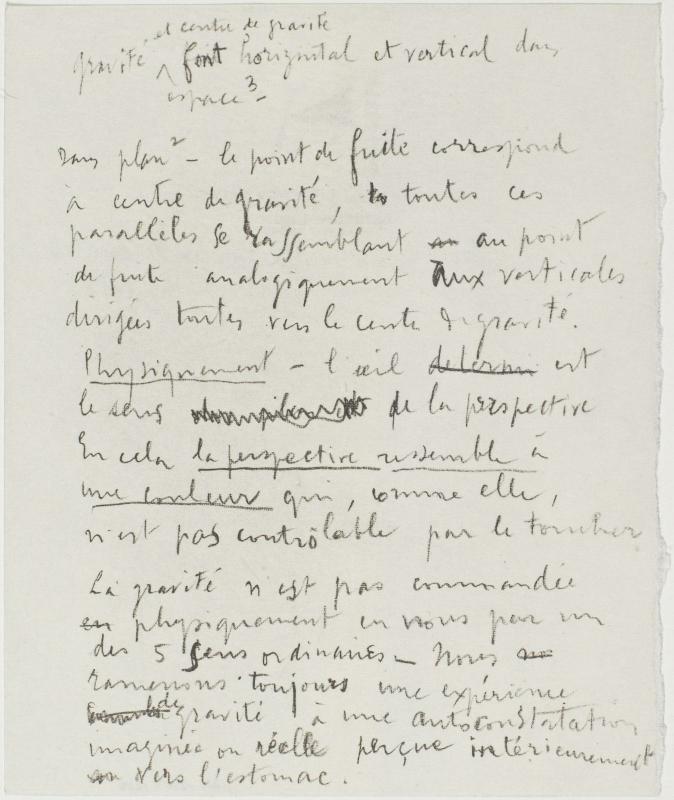 et centre de gravité
gravité ^ font horizontal et vertical dans
espace³ –
Dans plan² – le point de fuite correspond
à centre de gravité, toutes ces
parallèles se rassemblant au point
de fuite analogiquement aux verticales
dirigées toutes vers le centre de gravité.
Physiquement – l'œil determi est
le sens de la perspective
En cela la perspective ressemble à
une couleur qui, comme elle,
n'est pas contrôlable par le toucher
La gravité n'est pas commandée
en physiquement en nous par un
des 5 sens ordinaires – Nous
ramenons toujours une expérience
de gravité à une autoconstatation
imaginée ou réelle perçue intérieurement
vers l'estomac.